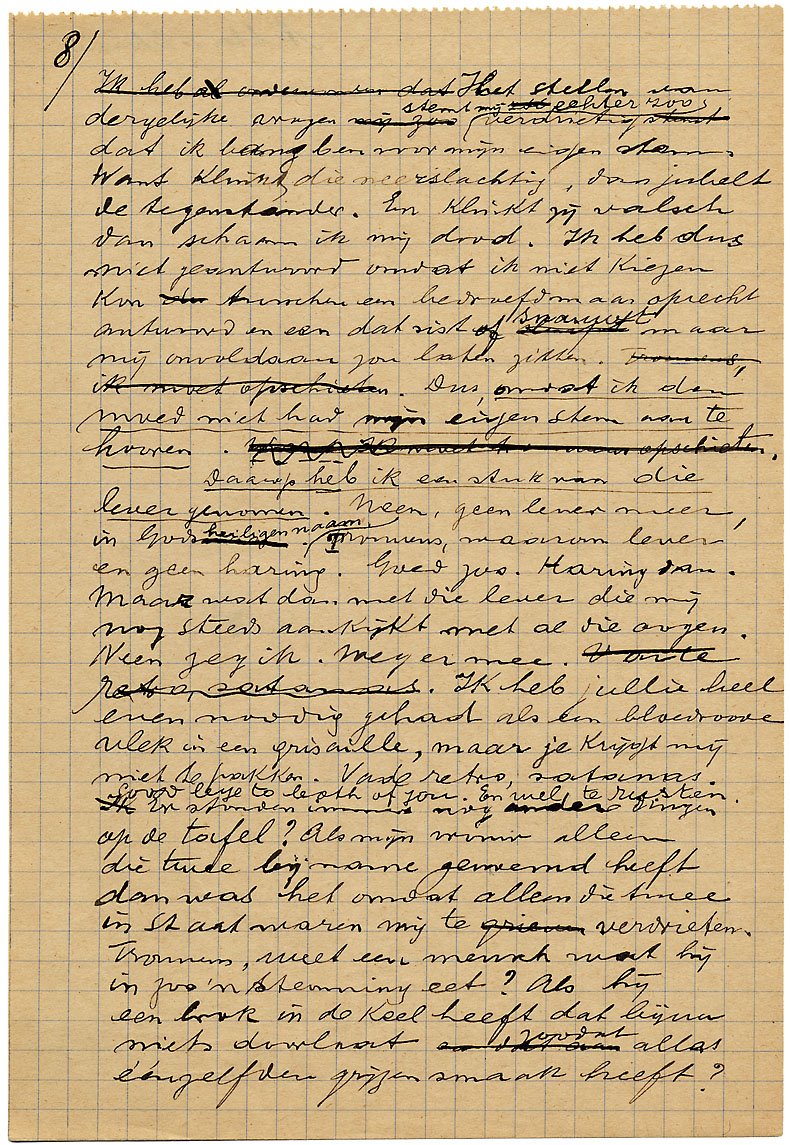 8/
Ik heb al dat Het stellen van
stemt mij echter zoo
dergelijke vragen mij zoo verdrietig stemt
dat ik bang ben voor mijn eigen stem.
Want klinkt die neerslachtig, dan jubelt
de tegenstander. En klinkt zij valsch
dan schaam ik mij dood. Ik heb dus
niet geantwoord omdat ik niet kiezen
kon tusschen een bedroefd maar oprecht
antwoord en een dat sist of snauwt maar
mij onvoldaan zou laten zitten. Trouwens,
ik moet opschieten. Dus, omdat ik den
moed niet had mijn eigen stem aan te
hooren. opschieten.
Daarop heb ik een stuk van die
lever genomen. Neen, geen lever meer,
in Gods heiligen naam. Trouwens, waarom lever
en geen haring. Goed zoo. Haring dan.
Maar wat dan met die lever die mij
nog steeds aankijkt met al die oogen.
Neen zeg ik. Weg er mee. Vade
retro, satanas. Ik heb jullie heel
even noodig gehad als een bloedroode
vlek in een grisaille, maar je krijgt mij
niet te pakken. Vade retro, satanas.
Good bye to both of you. En wel te rusten.
Ik En stonden nog andere dingen
op de tafel? Als mijn vrouw alleen
die twee bij name genoemd heeft
dan was het omdat alleen die twee
in staat waren mij te grieven verdrieten.
Trouwens, weet een mensch wat hij
in zoo'n stemming eet? Als hij
een brok in de keel heeft dat bijna
niets doorlaat zoodat alles
éénzelfden grijzen smaak heeft?